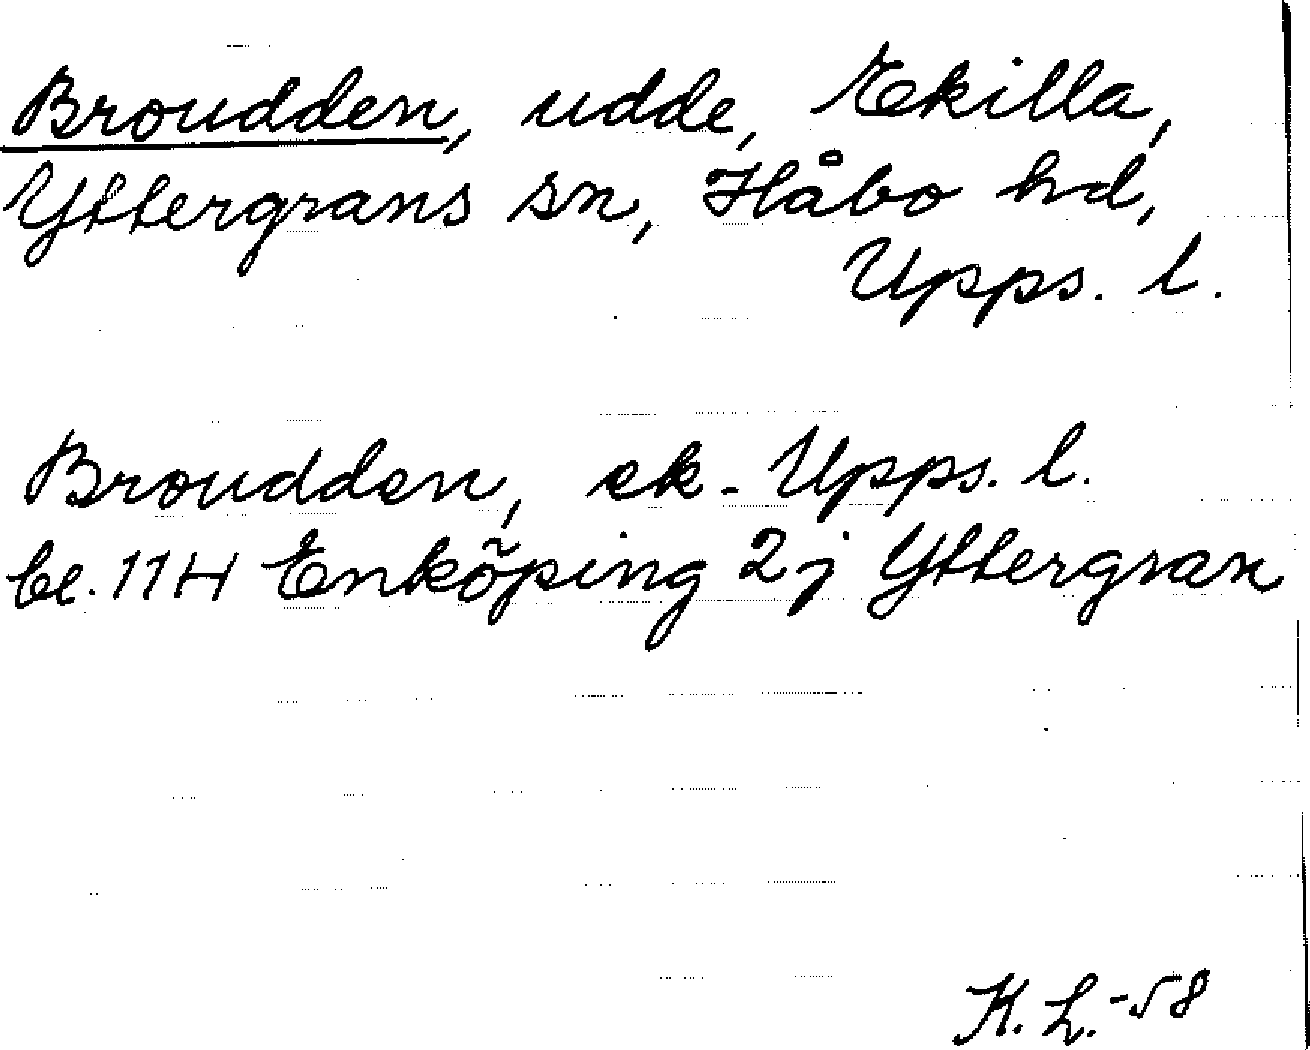 Broudden, udde, Ekilla,
Yttergrans sn, Håbo hd,
Upps. l.
Broudden, ek. Upps. l.
bl. 11H Enköping 2j Yttergran
K. L. -58